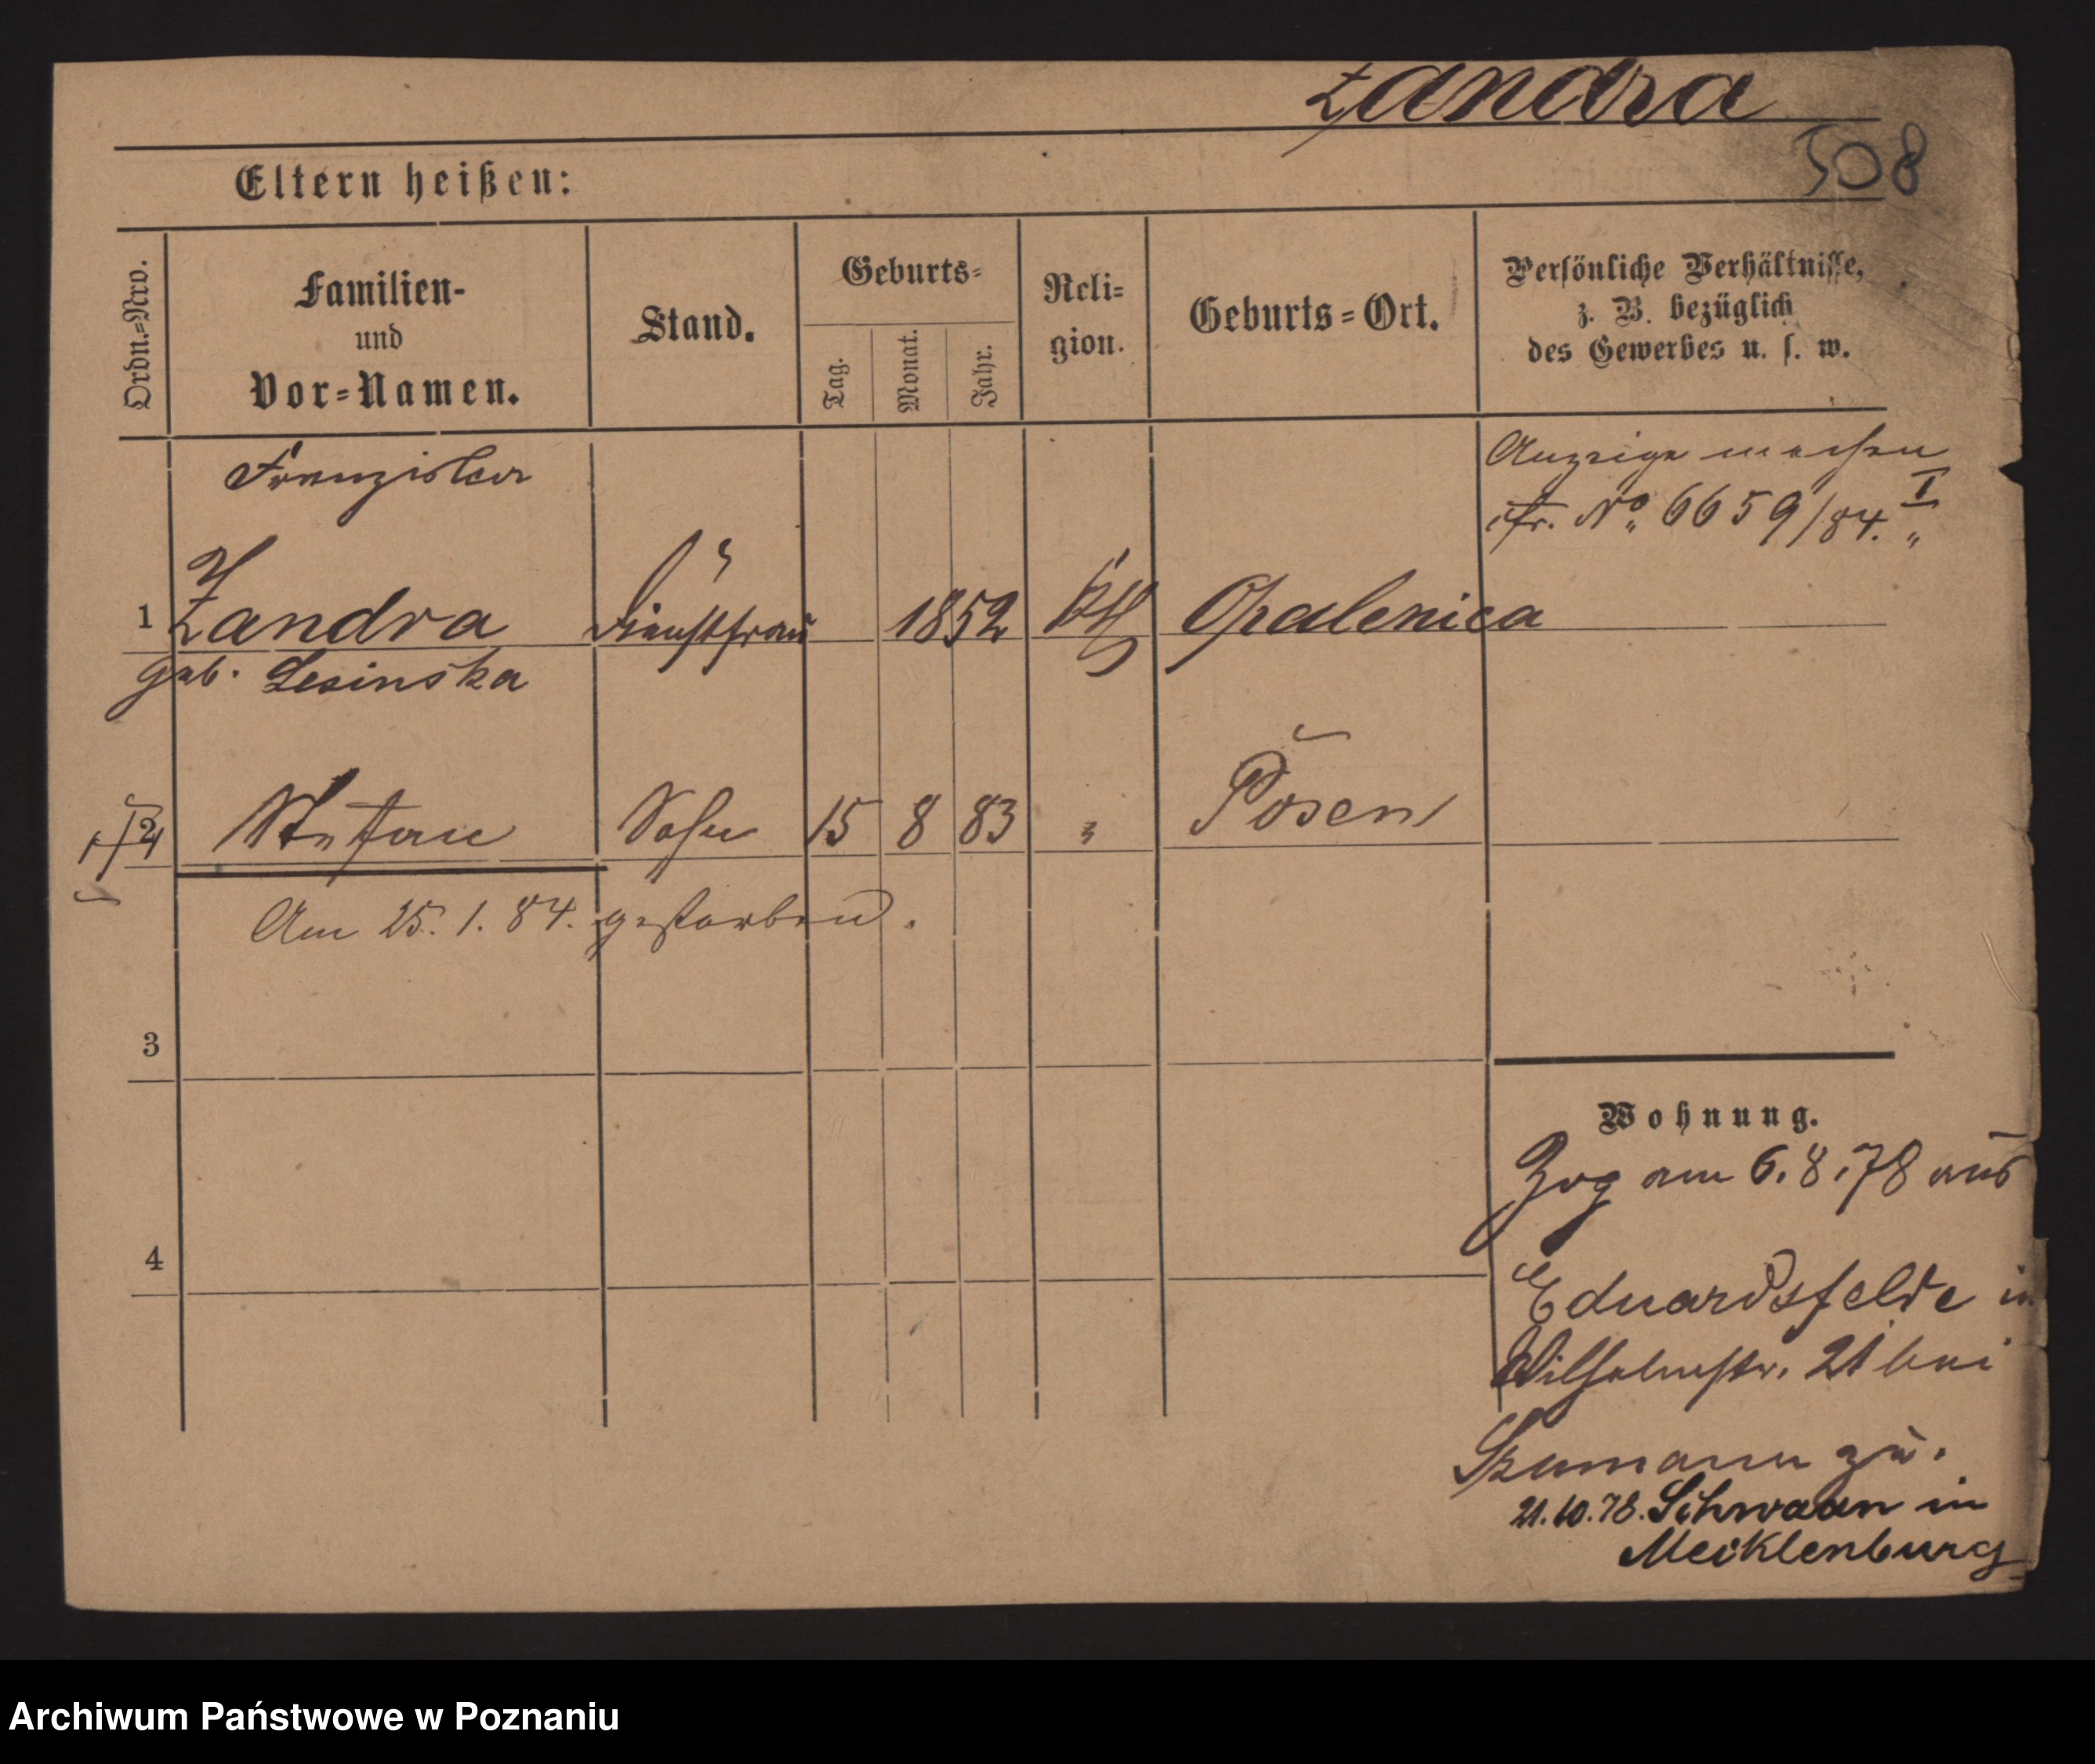 Zandra
508
Eltern heißen:
Ordn.=Nro.
Familien-
und
Vor=Namen.
Stand.
Geburts=
Tag.
Monat.
Jahr.
Reli=
gion.
Geburts=Ort.
Persönliche Verhältnisse,
z. B. bezüglich
des Gewerbes u. s. w.
Franziska
Anzeige machen
cfr. No. 6659/84. I
1 Zandra Dienstfrau 1852 kth Opalenica
geb. Lesinska
2 Stefan Sohn 15 8 83 " Posen
Am 25. 1. 84. gestorben.
3
4
Wohnung.
Zog am 6.8.78 aus
Eduardsfelde in
Wilhelmstr. 21 bei
Szumann zu.
21.10.78. Schwaan in
Mecklenburg
Archiwum Państwowe w Poznaniu